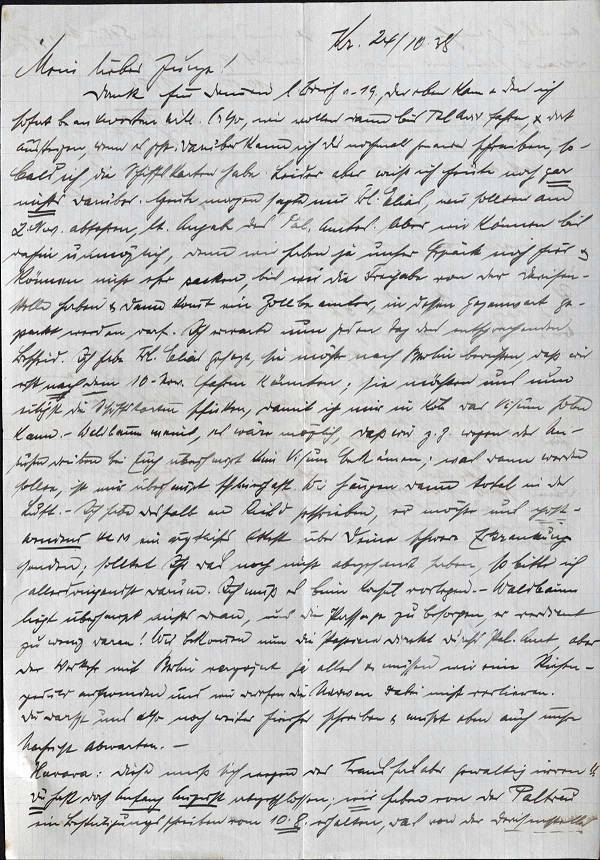 Kr. 24/10.38
Mein lieber Junge!
Dank für Deinen l. Brief v. 19., der eben kam & den ich
sofort beantworten will. Also, wir wollen dann bis Tel Aviv fahren, & dort
aussteigen, wenn es geht; darüber kann ich Dir nochmals genau schreiben, so-
bald ich die Schiffskarten habe. Leider aber weiß ich heute noch gar
nichts darüber. Heute morgen sagte mir Frl. Elias, wir sollten am
2. Nov. abfahren, lt. Angabe des Pal. Amtes. Aber wir können bis
dahin unmöglich, denn wir haben ja unser Gepäck noch hier &
können nicht eher packen, bis wir die Freigabe von der Devisen-
stelle haben & dann kommt ein Zollbeamter, in dessen Gegenwart ge-
packt werden darf. Ich erwarte nun jeden Tag den entsprechenden
Bescheid. Ich habe Frl. Elias gesagt, sie möge nach Berlin berichten, daß wir
erst nach dem 10. Nov. fahren könnten; sie möchten uns nun
die Schiffskarten schicken, damit ich mir in Köln das Visum holen
kann. – Waldbaum meint, es wäre möglich, daß wir z. Z. wegen der Un-
ruhen drüben bei Euch überhaupt kein Visum bekämen; was dann werden
sollte, ist mir überhaupt schleierhaft. Wir hängen dann total in der
Luft. – Ich hatte deshalb an geschrieben, er möchte uns
ein ärztliches Attest über Deine schwere Erkrankung
senden; solltet Ihr das noch nicht abgesandt haben, so bitte ich
allerdringendst darum. Ich muß es beim Konsul vorlegen. – Waldbaum
liegt überhaupt nichts dran, uns die Passage zu besorgen, er verdient
zu wenig daran! Wir bekommen nun die Papiere direkt durchs Pal. Amt aber
der Verkehr mit Berlin verzögert ja alles & müssen wir eine Riesen-
geduld aufwenden und wir dürfen die Nerven dabei nicht verlieren.
Du darfst uns also noch weiter hierher schreiben & mußt eben auch unsre
Nachricht abwarten. –
Haavara: Diese muß sich wegen des Transfers aber gewaltig irren!!
Du hast doch Anfang August abgeschlossen; wir haben von der Paltreu
ein Bestätigungsschreiben vom 10.8. erhalten, das von der Devisenstelle